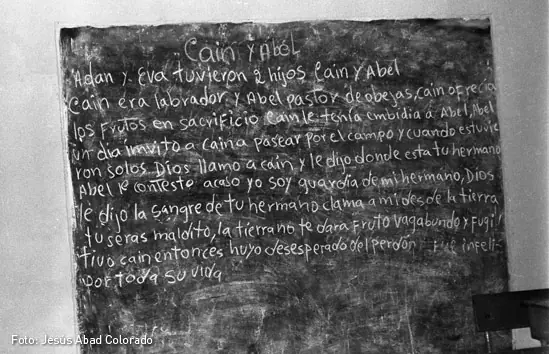 Cain y Abel
Adan y Eva tuvieron 2 hijos Cain y Abel
Cain era labrador y Abel pastor de obejas, Cain ofrecia
los frutos en sacrificio Cain le tenia embidia a Abel, Abel
un dia imvito a Caina pasear por el campo y cuando estuvie
ron solos Dios llamo a cain y le dijo donde esta tu hermano
Abel le contesto acaso yo soy guardia de mi hermano, Dios
le dijo la sangre de tu hermano clama a mi desde la tierra
tu seras maldito, la tierra no te dara fruto vagabundo y fugi
tivo cain entonces huyo desesperado del perdon fue infeli
por toda su vida
Foto: Jesús Abad Colorado